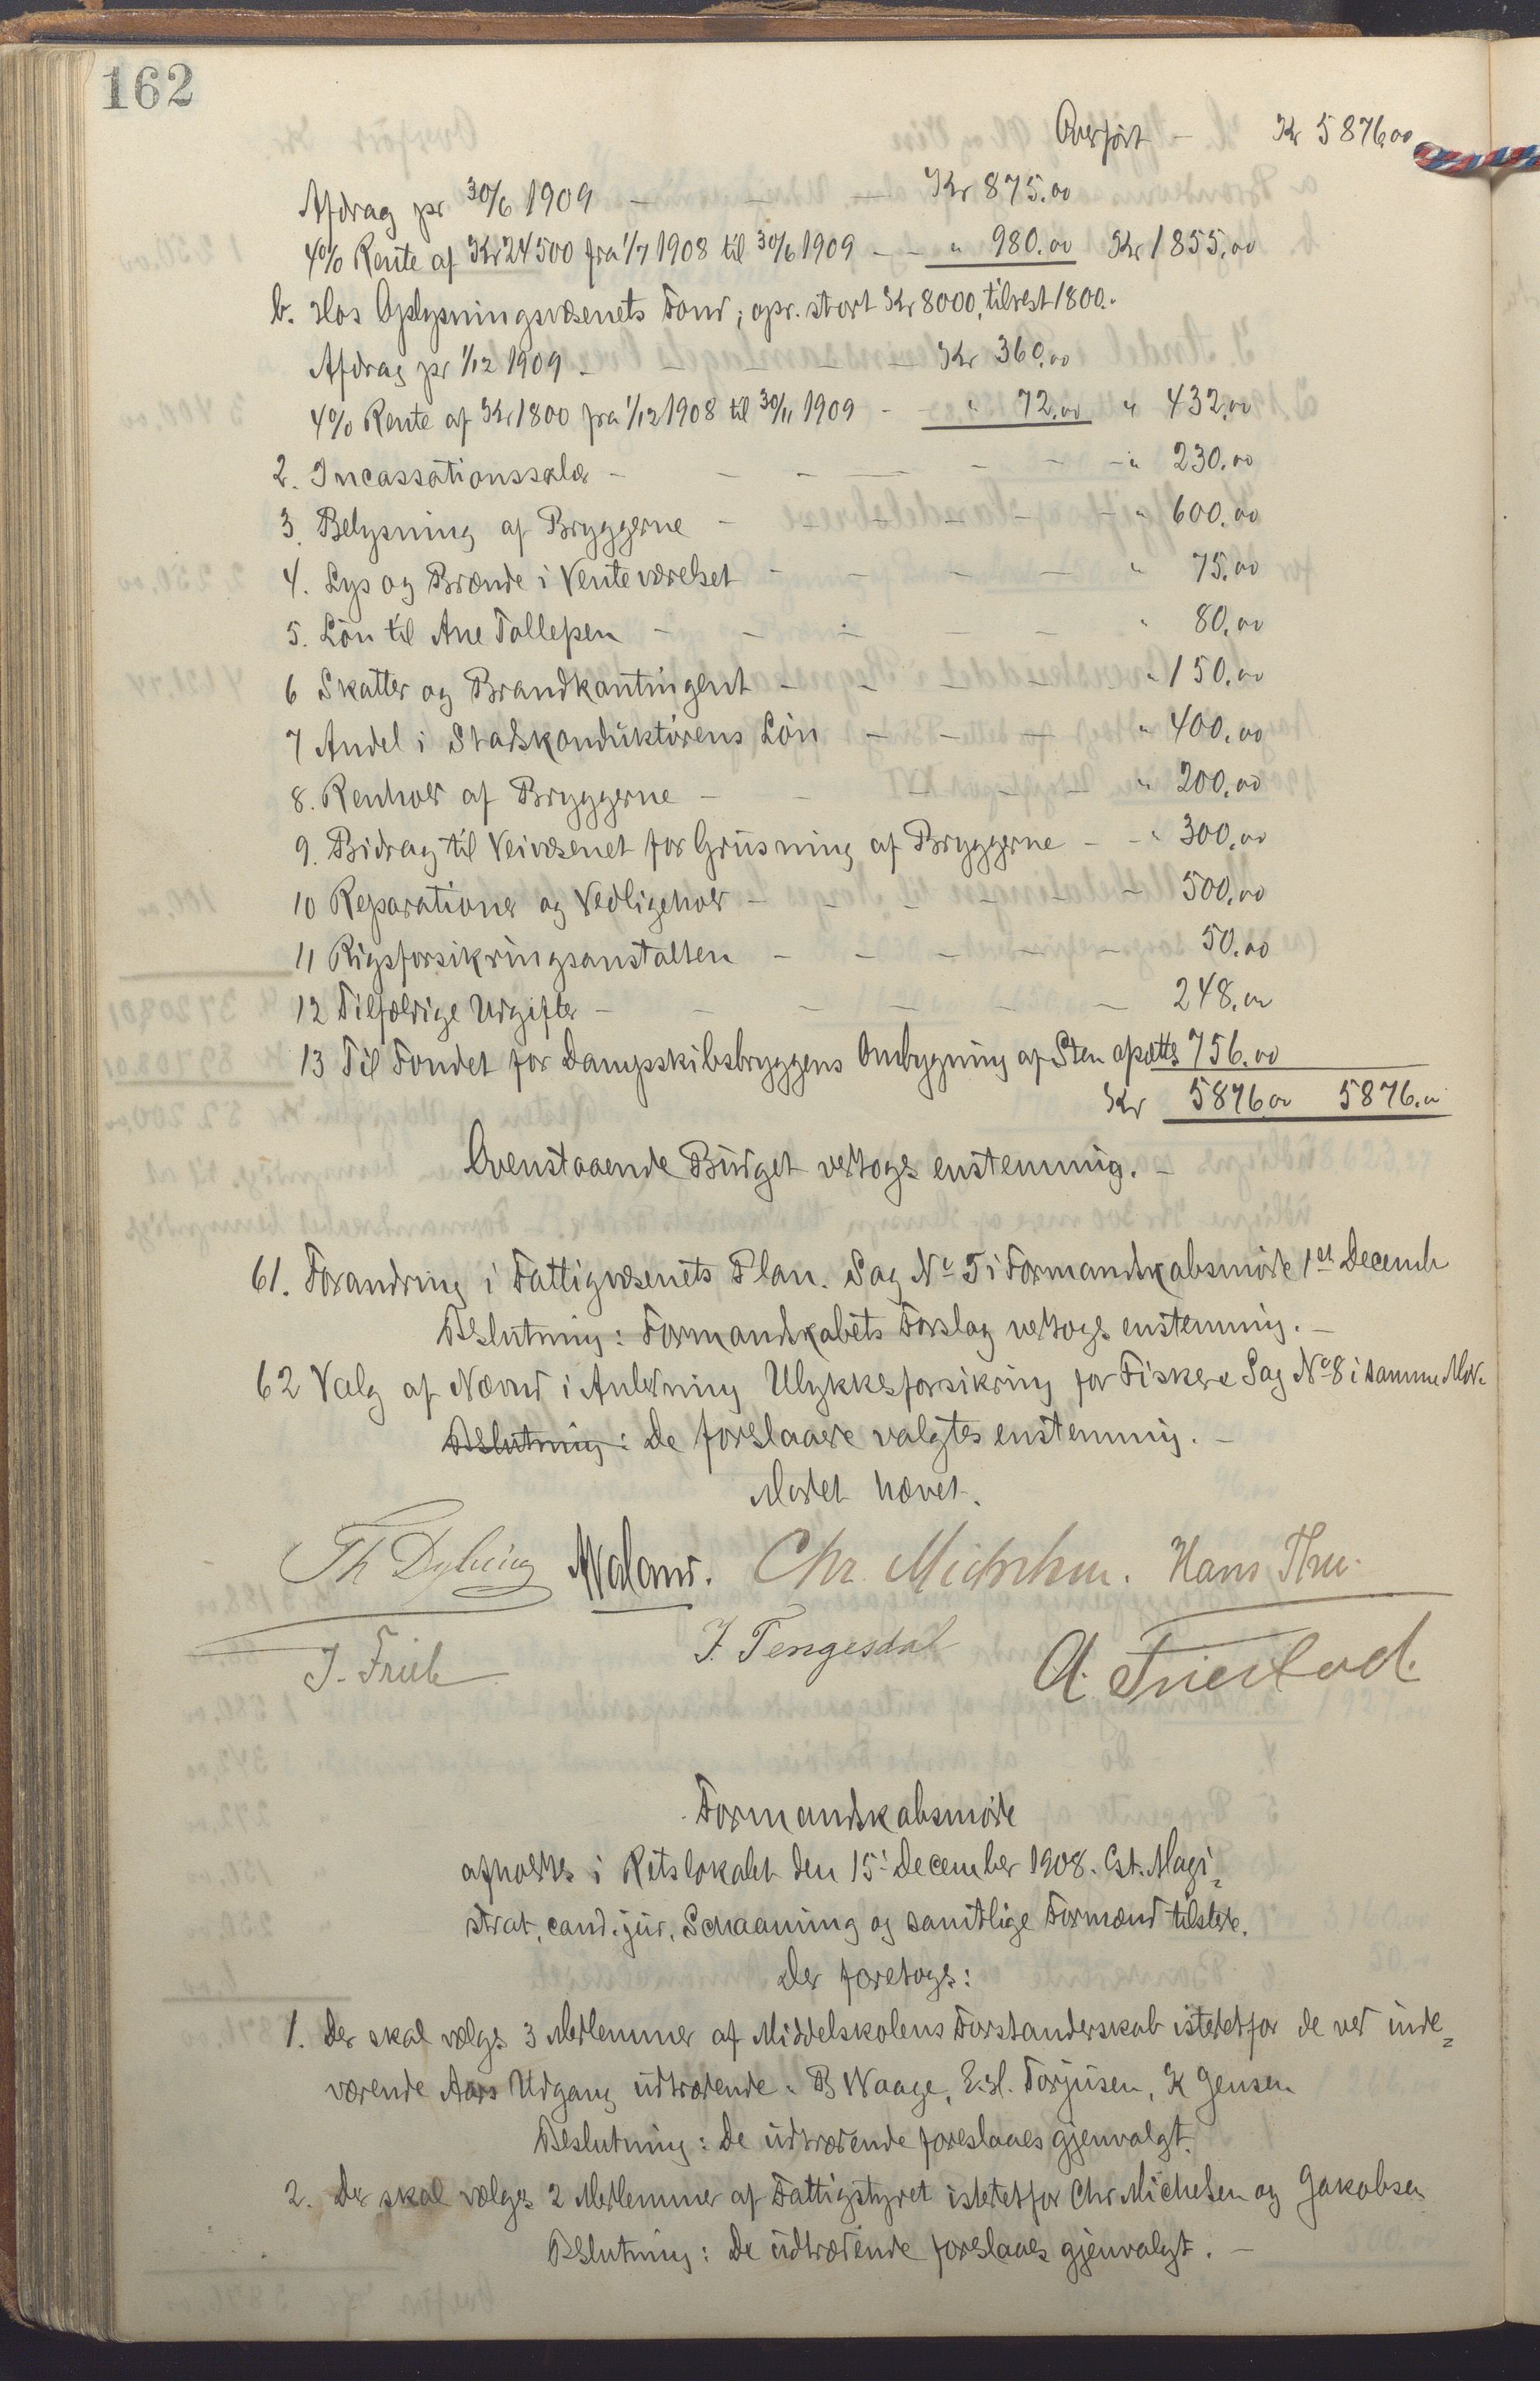 162
Overført - Kr 5876.00
Afdrag pr 30/6 1909 - - - Kr 875.00
4% Rente af Kr 24500 fra 1/7 1908 til 30/6 1909 - - " 980.00 Kr 1855.00
b. Hos Oplysningsvæsenets Fond; opr. stort Kr 8000, tilrest 1800.-
Afdrag pr 1/12 1909 - - - - - Kr 360.00
4% Rente af Kr 1800 fra 1/12 1908 til 30/11 1909 - - " 72.00 " 432.00
2. Incassationssalær - - - - - - - " 230.00
3. Belysning af Bryggerne - - - - - - " 600.00
4. Lys og Brænde i Venteværelset - - - - - " 75.00
5. Løn til Ane Tallepsen - - - - - " 80.00
6 Skatter og Brandkontingent - - - - - " 150.00
7 Andel i Stadskonduktørens Løn - - - - " 400.00
8. Renhold af Bryggerne - - - - - " 200.00
9. Bidrag til Veivæsenet for Grusning af Bryggerne - - " 300.00
10 Reparationer og Vedligehold - - - - - - 500.00
11 Rigsforsikringsanstalten - - - - - 50.00
12 Tilfældige Udgifter - - - - - - 248.00
13 Til Fondet for Dampskibsbryggens Ombygning af Sten afsættes 756.00
Kr 5876.00 5876.00
Ovenstaaende Budget vedtoges enstemmig. -
61. Forandring i Fattigvæsenets Plan. Sag No 5 i Formandskabsmøde 1ste Decemb
Beslutning: Formandskabets Forslag vedtoges enstemmig. -
62 Valg af Nævnd i Anledning Ulykkesforsikring for Fiskere Sag No 8 i samme Møde
Beslutning: De foreslaaede valgtes enstemmig. -
Mødet hævet.
Th Dybing Maland. Chr. Michelsen. Hans Thu.
J. Frich J. Tengesdal A. Friestad.
Formandskabsmøde
afholdtes i Retslokalet den 15' December 1908. Cst. Magi=
strat, cand. jur. Schaaning og samtlige Formænd tilstede.
Der foretoges:
1. Der skal vælges 3 Medlemmer af Middelskolens Forstanderskab istedetfor de ved inde=
værende Aars Udgang udtrædende. B Waage, E. H. Torjusen, K Jensen
Beslutning: De udtrædende foreslaaes gjenvalgt.
2. Der skal vælges 2 Medlemmer af Fattigstyret istedetfor Chr Michelsen og Jakobsen
Beslutning: De udtrædende foreslaaes gjenvalgt. -